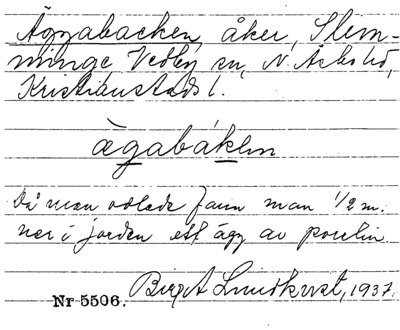 Äggabacken, åker, Slim-
minge Vedby sn, N. Åsbo hd,
Kristianstads l.
ägabákən
Då man odlade fann man 1/2 m.
ner i jorden ett ägg av porslin.
Birgit Lundkvist, 1937.
Nr 5506.